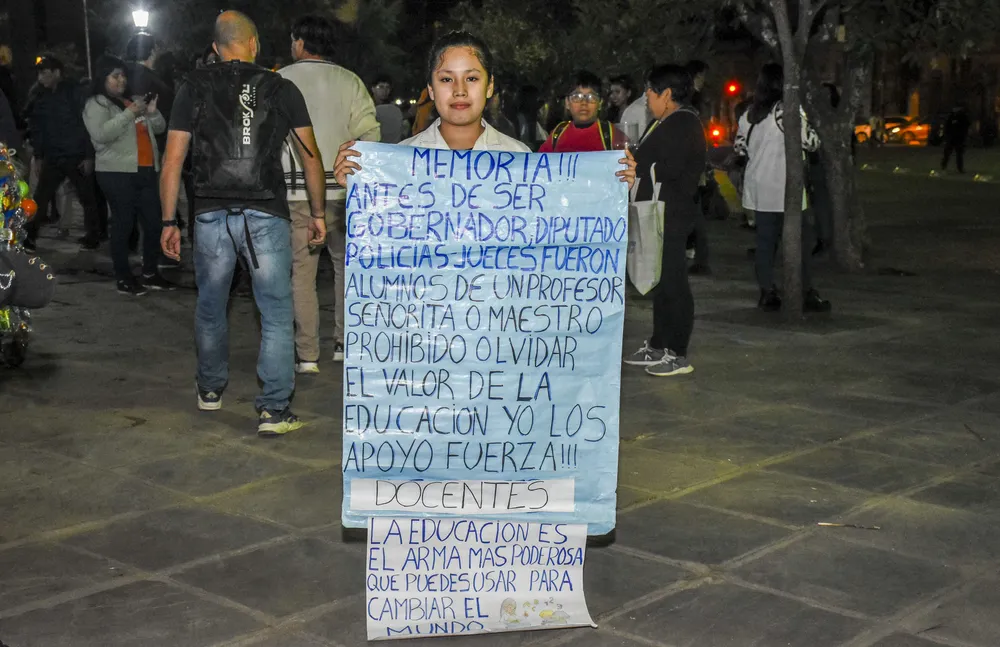 BROKSOL
MEMORIA!!!
ANTES DE SER
GOBERNADOR, DIPUTADO
POLICIAS-JUECES FUERON
ALUMNOS DE UN PROFESOR
SEÑORITA O MAESTRO
PROHIBIDO OLVIDAR
EL VALOR DE LA
EDUCACIÓN YO LOS
APOYO FUERZA!!!
DOCENTES
LA EDUCACION ES
EL ARMA MAS PODEROSA
QUE PUEDES USAR PARA
CAMBIAR EL
MUNDO